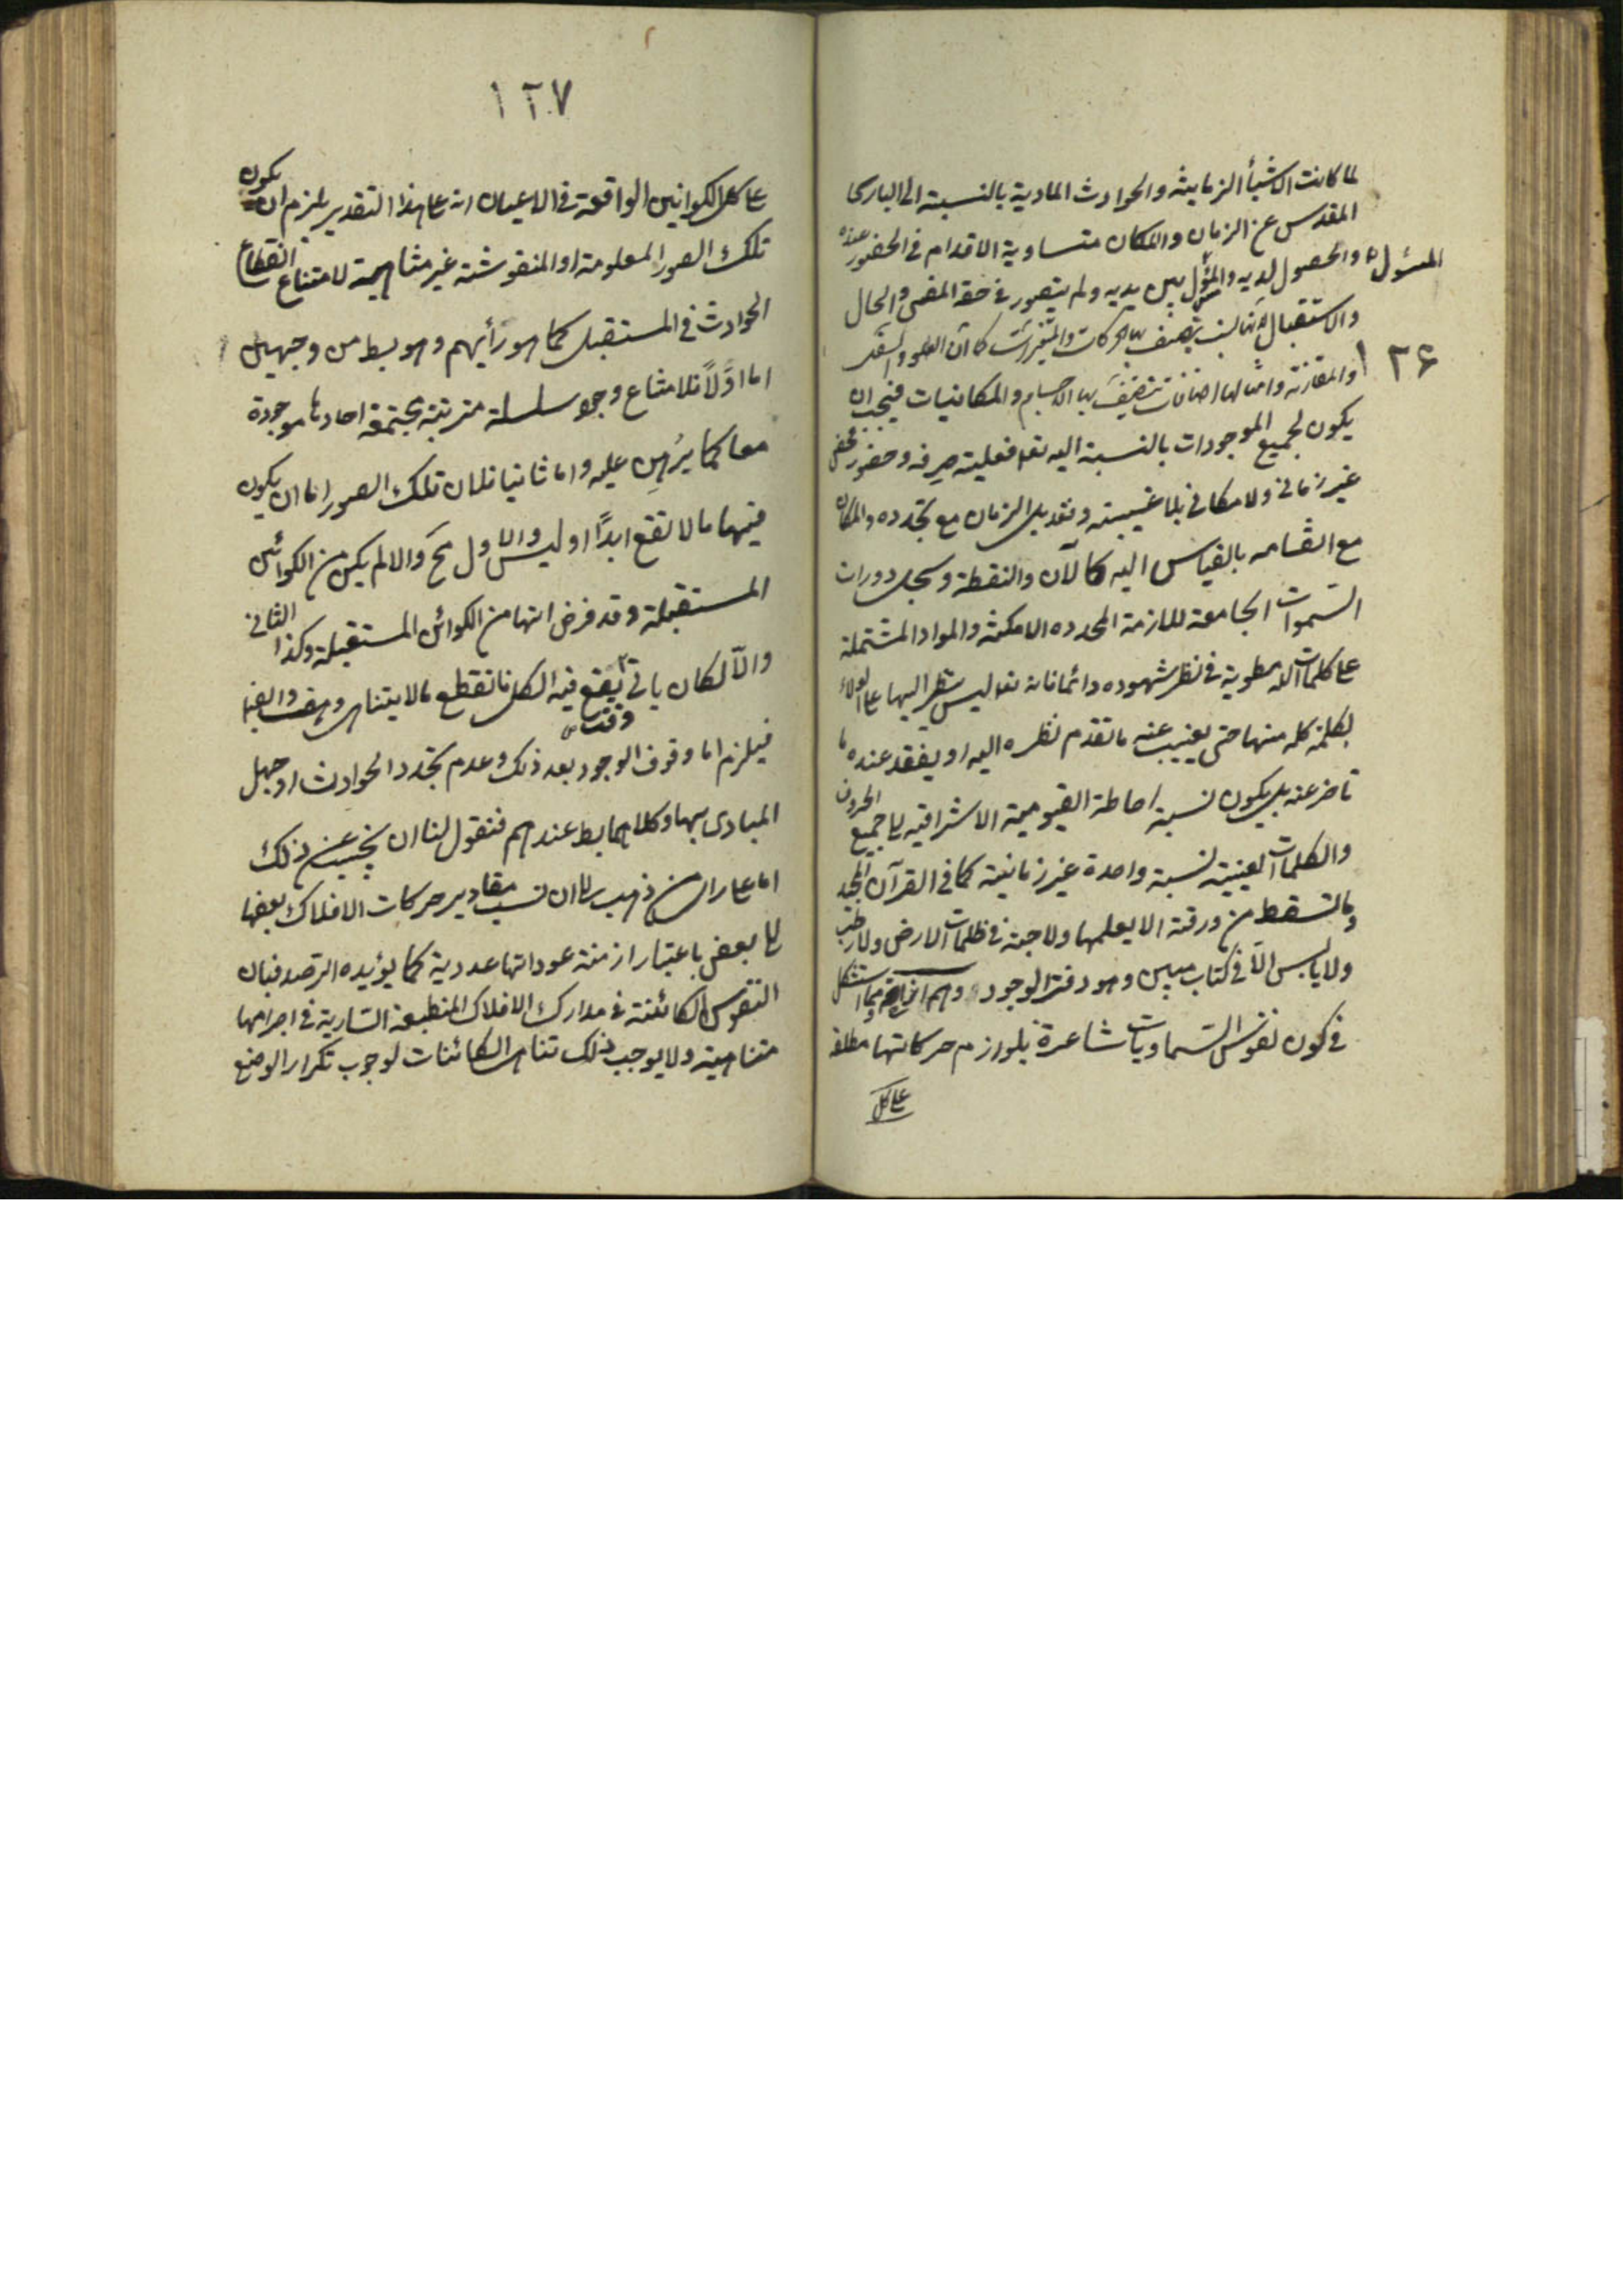 لما كانت الاشيأ الزمانية والحوادث المادية بالنسبة الى الباري
المقدس عن الزمان والمكان متساوية الاقدام في الحضور عنده
والحصول لديه والمثول بين يديه ولم يتصور في حقه المضي والحال
المثول
والاستقبال لانها نسب يتصف بها الحركات والمتغيرات كما ان العلو والسفل
١٢٦
والمقارنة وامثالها اضافات تتصف بها الاجسام والمكانيات فيجب ان
يكون لجميع الموجودات بالنسبة اليه تعا فعلية صرفة وحضور محض
غير زماني ولا مكاني بلا غيبة وفقد بل الزمان مع تجدده والمكان
مع انقسامه بالقياس اليه كالآن والنقطة وسجل دورات
السموات الجامعة للازمة المحدده الامكنة والمواد المشتملة
على كلمات الله مطوية في نظر شهوده دائما فانه تعا ليس ينظر اليها على الولاء
لكلمة كلمة منها حتى يغيب عنه ما تقدم نظره اليه او يفقد عنده ما
تاخر عنه بل يكون نسبة احاطة القيومية الاشراقية الى جميع الحروف
والكلمات العينية نسبة واحدة غير زمانية كما في القرآن المجيد
وما تسقط من ورقة الا يعلمها ولا حبة في ظلمات الارض ولا رطب
ولا يابس الا في كتاب مبين وهو دفتر الوجود وهم ومما استشكل
في كون نفوس السماويات شاعرة بلوازم حركاتها مطلعة
على كل
١٢٧
على كل الكوانين الواقعة في الاعيان انه على هذا التقدير يلزم ان يكون
تلك الصور المعلومة او المنقوشة غير متناهية لامتناع انقطاع
الحوادث في المستقبل كما هو رأيهم وهو بط من وجهين
اما اولاً فلامتناع وجود سلسلة مترتبة مجتمعة احادها موجودة
معا كما برهن عليه واما ثانيا فلان تلك الصور اما ان يكون
فيها ما لا تقع ابداً او ليس والاول مح والا لم يكن من الكوائن
المستقبلة وقد فرض انها من الكوائن المستقبلة وكذا الثاني
والا لكان ياتي وقت يقع فيه الكل فانقطع ما لا يتناهى وهف وايضا
فيلزم اما وقوف الوجود بعد ذلك وعدم تجدد الحوادث او جهل
المبادي بها وكلاهما بط عندهم فنقول لنا ان نجيب عن ذلك
اما على راي من ذهب الى ان نسب مقادير حركات الافلاك بعضها
الى بعض باعتبار ازمنة عوداتها عددية كما يؤيده الرصد فبان
النقوس الكائنة في مدارك الافلاك المنطبعة السارية في اجرامها
متناهية ولا يوجب ذلك تناهى الكائنات لوجوب تكرار الوضع